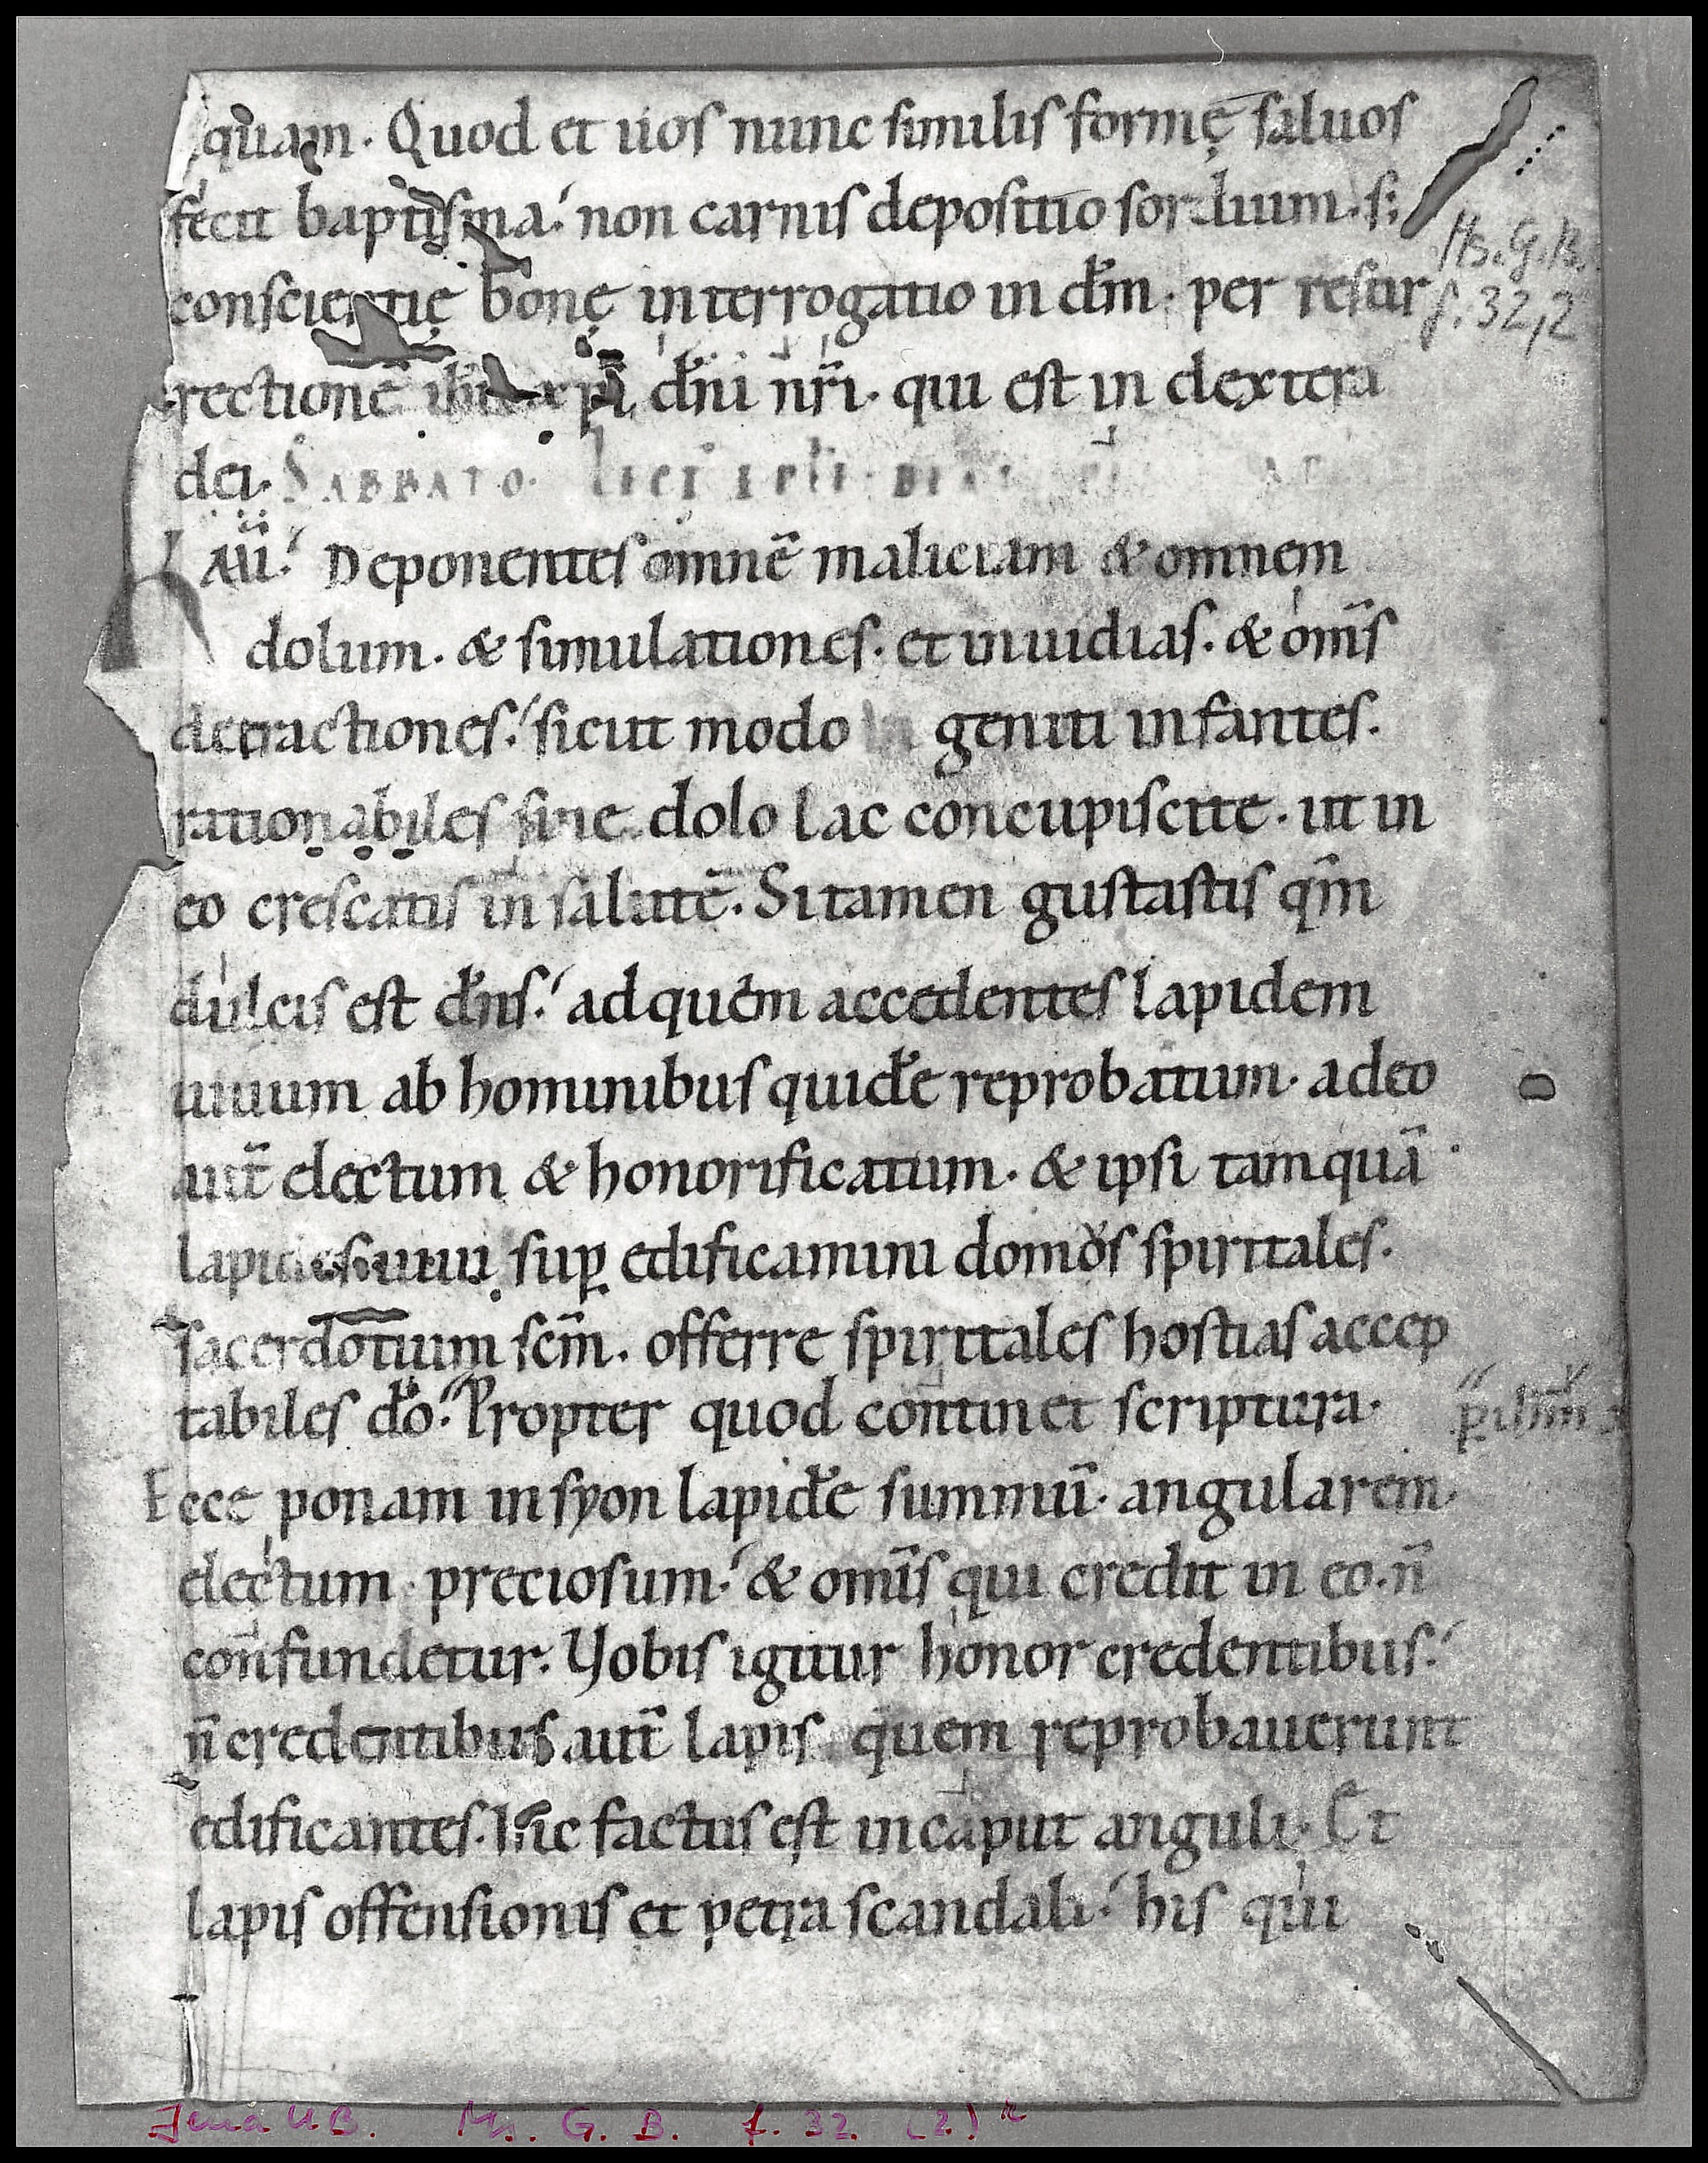 quam. Quod et uos nunc similis formę saluos
fecit baptisma. non carnis depositio sordium. s;
conscientię bonę interrogatio in dm̄. per resur
rectionē ihu xpi, dn̄i nr̄i. qui est in dextera
dei. SABBATO.
Deponentes omnē maliciam & omnem
dolum. & simulationes. et inuidias. & om̄s
detractiones. sicut modo geniti infantes.
rationabiles sine dolo lac concupiscite. ut in
eo crescatis in salutē. Si tamen gustastis qm̄
dulcis est dn̄s. ad quem accedentes lapidem
uiuum ab hominibus quidē reprobatum. a deo
aut̄ electum & honorificatum. & ipsi tamquā
lapides uiui sup̱ edificamini domos spiritales.
sacerdotium scm̄. offerre spiritales hostias accep
tabiles dō. Propter quod continet scriptura.
Ecce ponam in syon lapidē summū. angularem
electum preciosum. & om̄is qui credit in eo. n̄
confundetur. Vobis igitur honor credentibus.
n̄ credentibus aut̄ lapis quem reprobauerunt
edificantes. hic factus est in caput anguli. Et
lapis offensionis et petra scandali. his qui
Hs. G. B.
f. 32,2
Jena U.B. Ms. G. B. f. 32. (2)